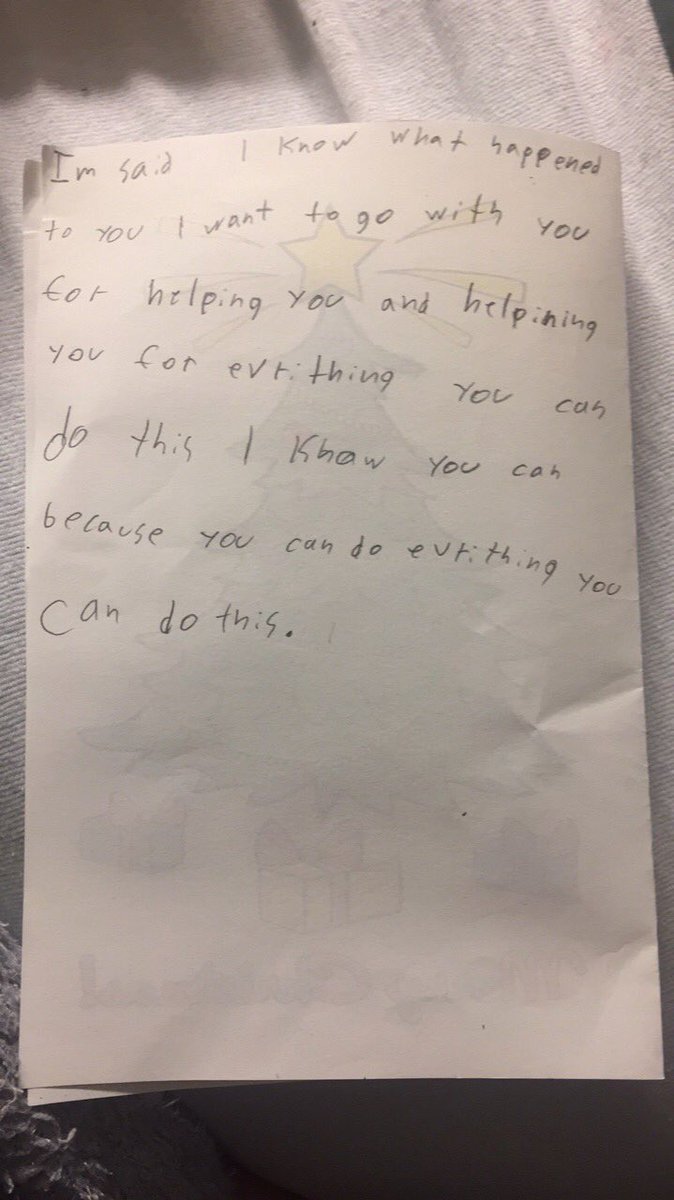 Im said I know what happened
to you I want to go with you
for helping you and helpining
you for evrithing you can
do this I Khow you can
because you can do evrithing you
can do this.